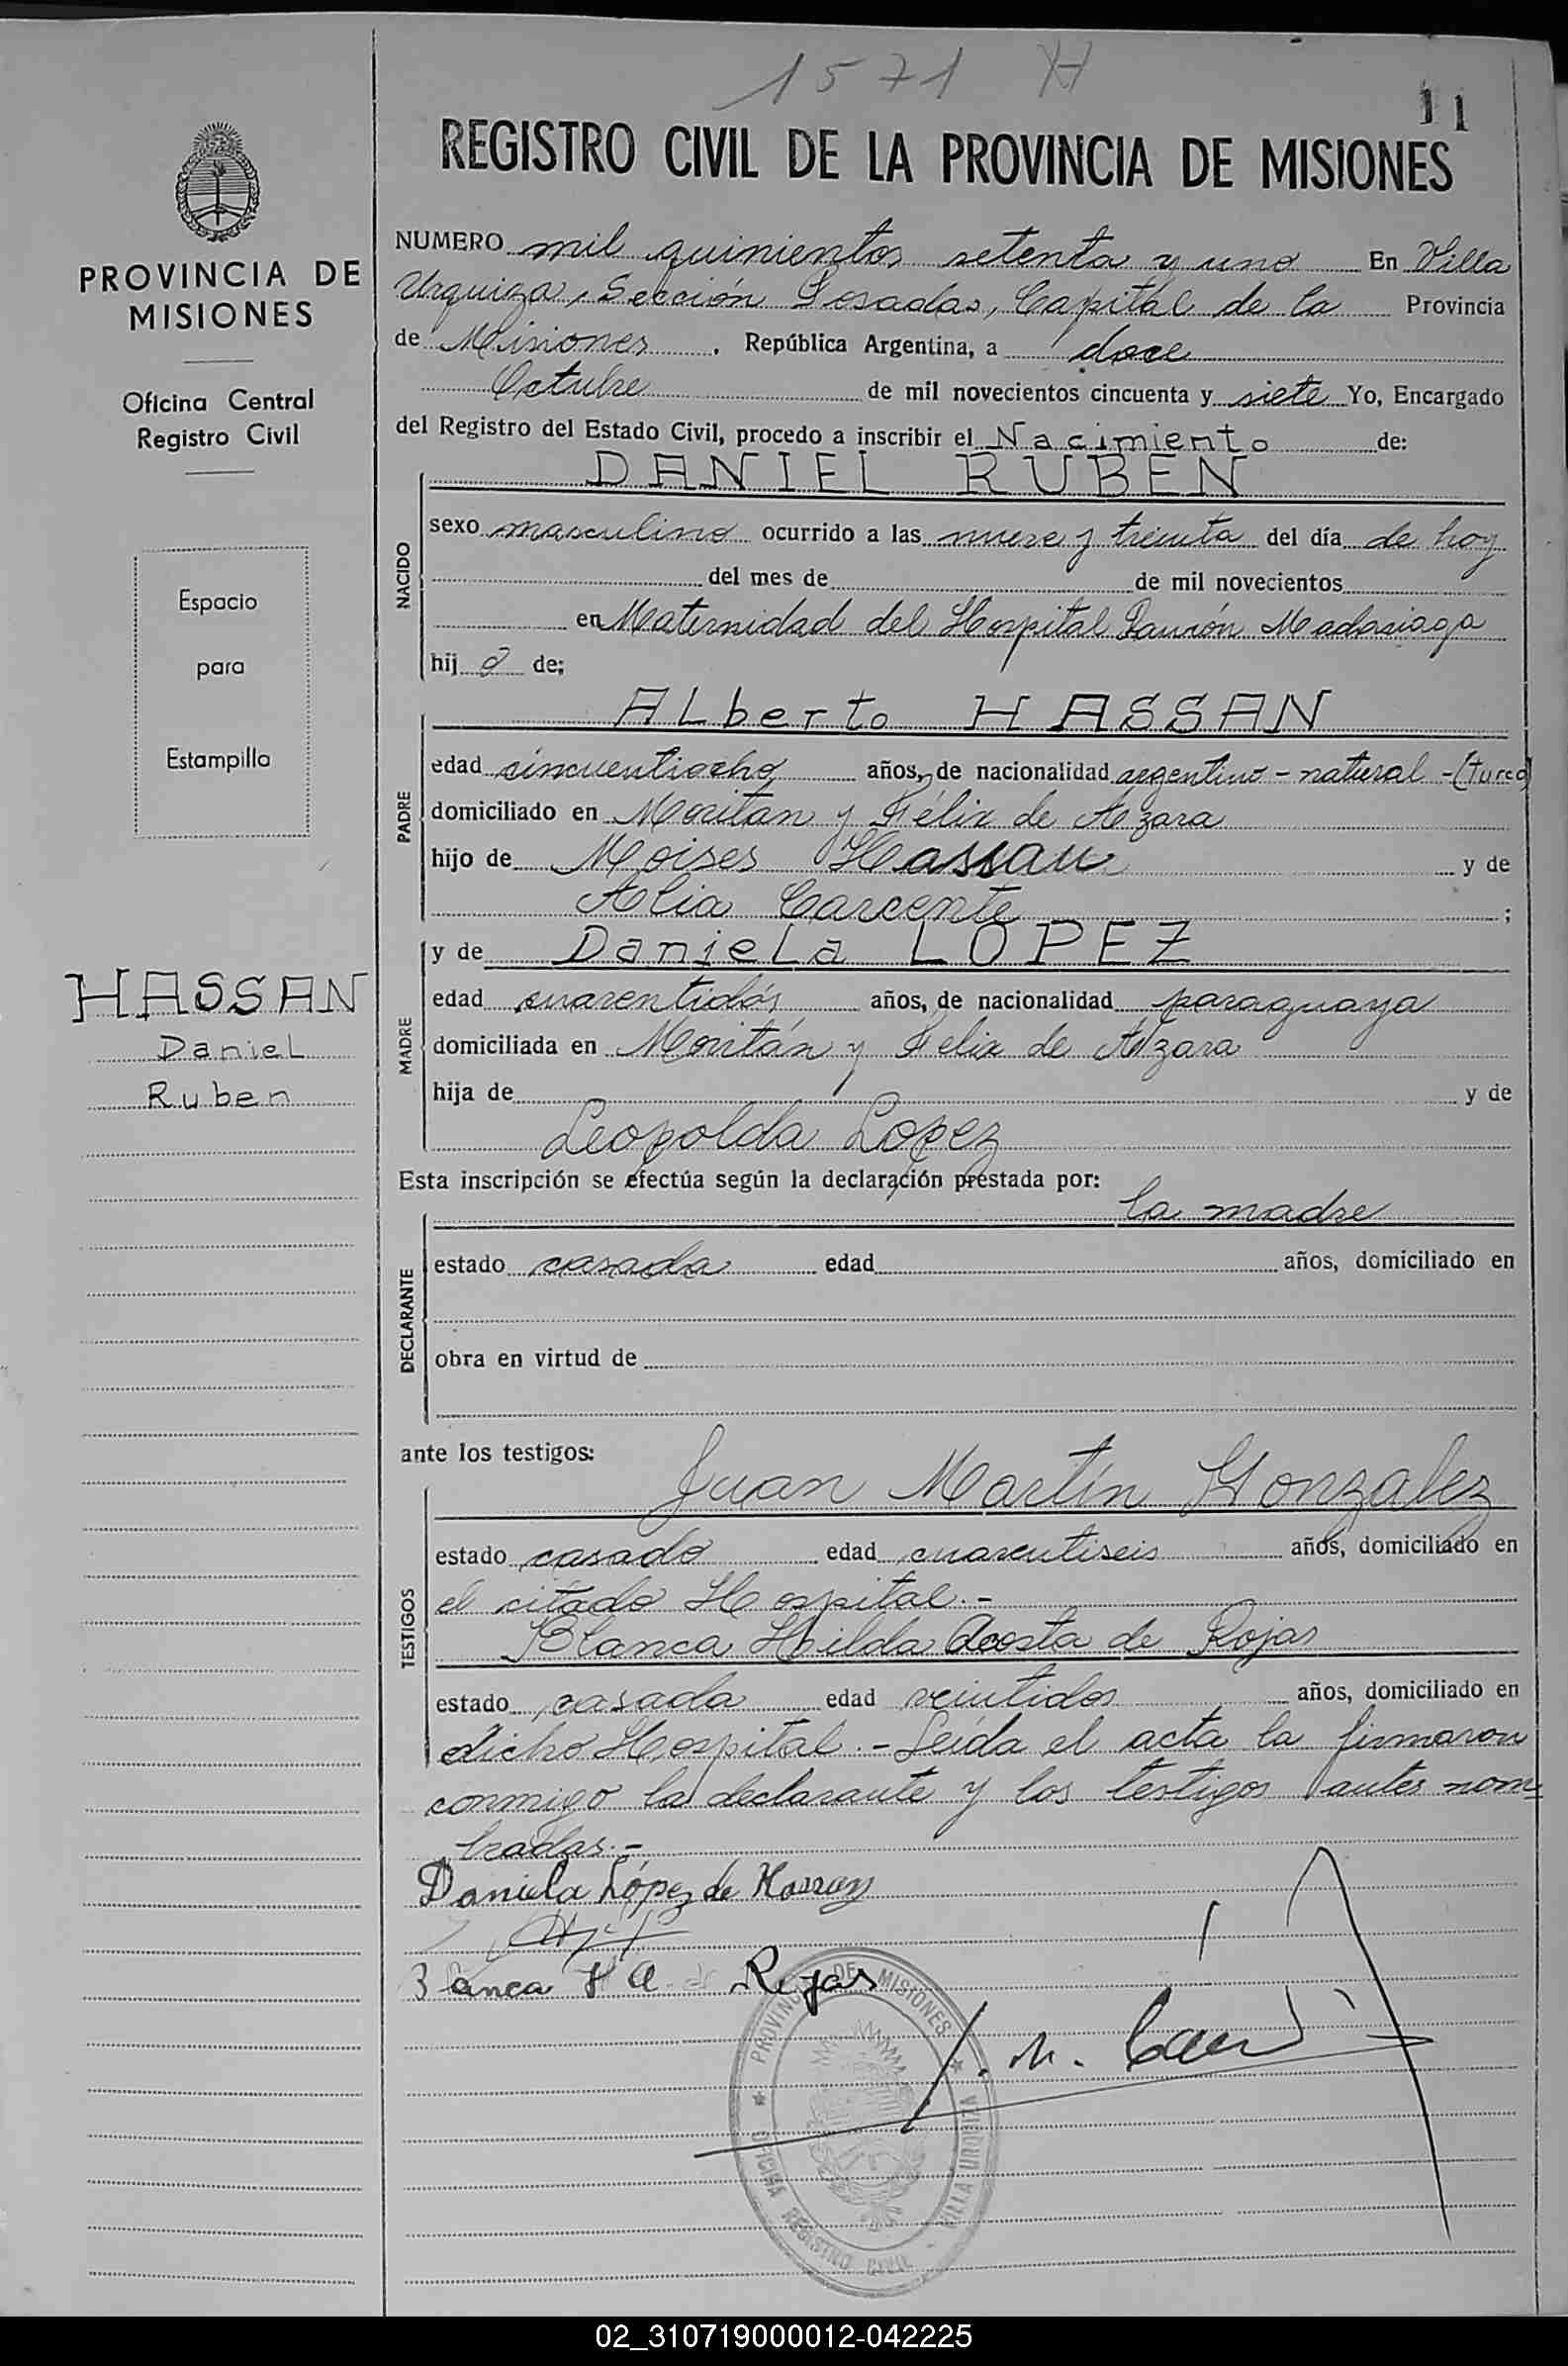 1571 H
11
REGISTRO CIVIL DE LA PROVINCIA DE MISIONES
PROVINCIA DE
MISIONES
Oficina Central
Registro Civil
Espacio
para
Estampilla
HASSAN
Daniel
Ruben
NUMERO mil quinientos setenta y uno En Villa
Urquiza, Sección Posadas, Capital de la Provincia
de Misiones . República Argentina, a doce
Octubre de mil novecientos cincuenta y siete Yo, Encargado
del Registro del Estado Civil, procedo a inscribir el Nacimiento de:
NACIDO
DANIEL RUBEN
sexo masculino ocurrido a las nueve y treinta del día de hoy
del mes de de mil novecientos
en Maternidad del Hospital Ramón Madariaga
hij o de:
PADRE
Alberto HASSAN
edad cincuentiocho años, de nacionalidad argentino - natural - (turco)
domiciliado en Moritan y Félix de Azara
hijo de Moises Hassan y de
Alia Carcente ;
MADRE
y de Daniela LOPEZ
edad cuarentidós años, de nacionalidad paraguaya
domiciliada en Moritán y Felix de Azara
hija de y de
Leopolda Lopez
Esta inscripción se efectúa según la declaración prestada por:
la madre
DECLARANTE
estado casada edad años, domiciliado en
obra en virtud de
ante los testigos:
TESTIGOS
Juan Martín Gonzalez
estado casado edad cuarentiseis años, domiciliado en
el citado Hospital.-
Blanca Hilda Acosta de Rojas
estado casada edad veintidos años, domiciliado en
dicho Hospital.- Leída el acta la firmaron
conmigo la declarante y los testigos antes nom=
brados.-
Daniela López de Hassan
Blanca H A de Rojas
PROVINCIA DE MISIONES
OFICINA REGISTRO CIVIL - VILLA URQUIZA
02_310719000012-042225